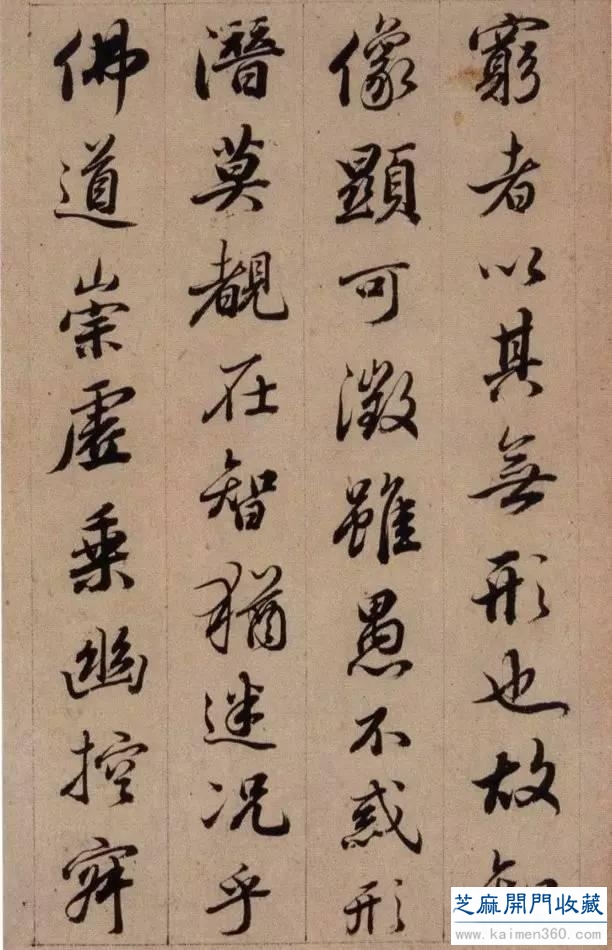 窮者以其無形也故知
像顯可徵雖愚不惑形
潛莫覩在智猶迷况乎
佛道崇虛乗幽控寂
芝麻開門收藏
www.kaimen360.com